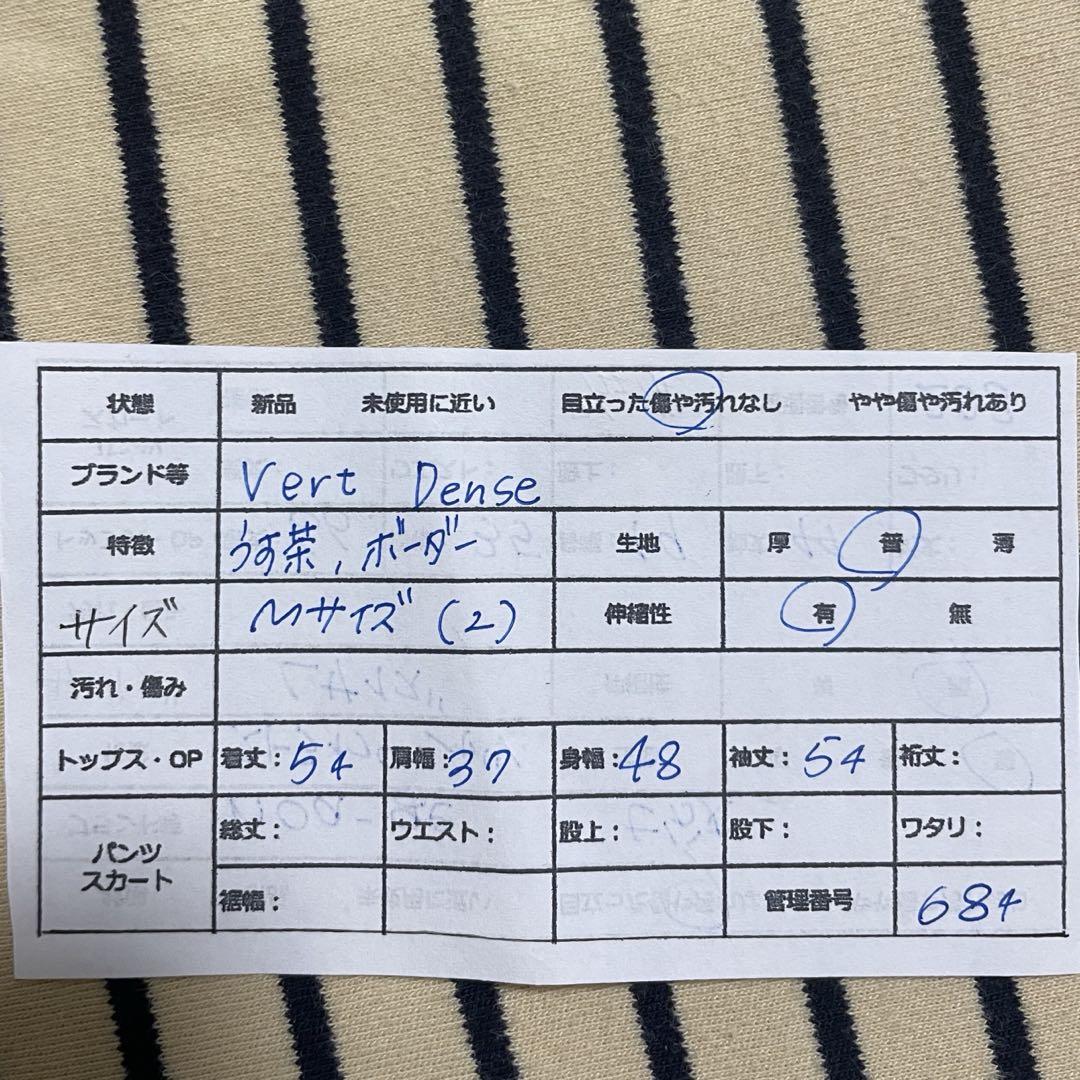 状態 新品 未使用に近い 目立った傷や汚れなし やや傷や汚れあり
ブランド等 Vert Dense
特徴 うす茶, ボーダー 生地 厚 普 薄
サイズ Mサイズ (2) 伸縮性 有 無
汚れ・傷み
トップス・OP 着丈: 54 肩幅: 37 身幅: 48 袖丈: 54 裄丈:
パンツ スカート 総丈: ウエスト: 股上: 股下: ワタリ:
裾幅: 管理番号 684